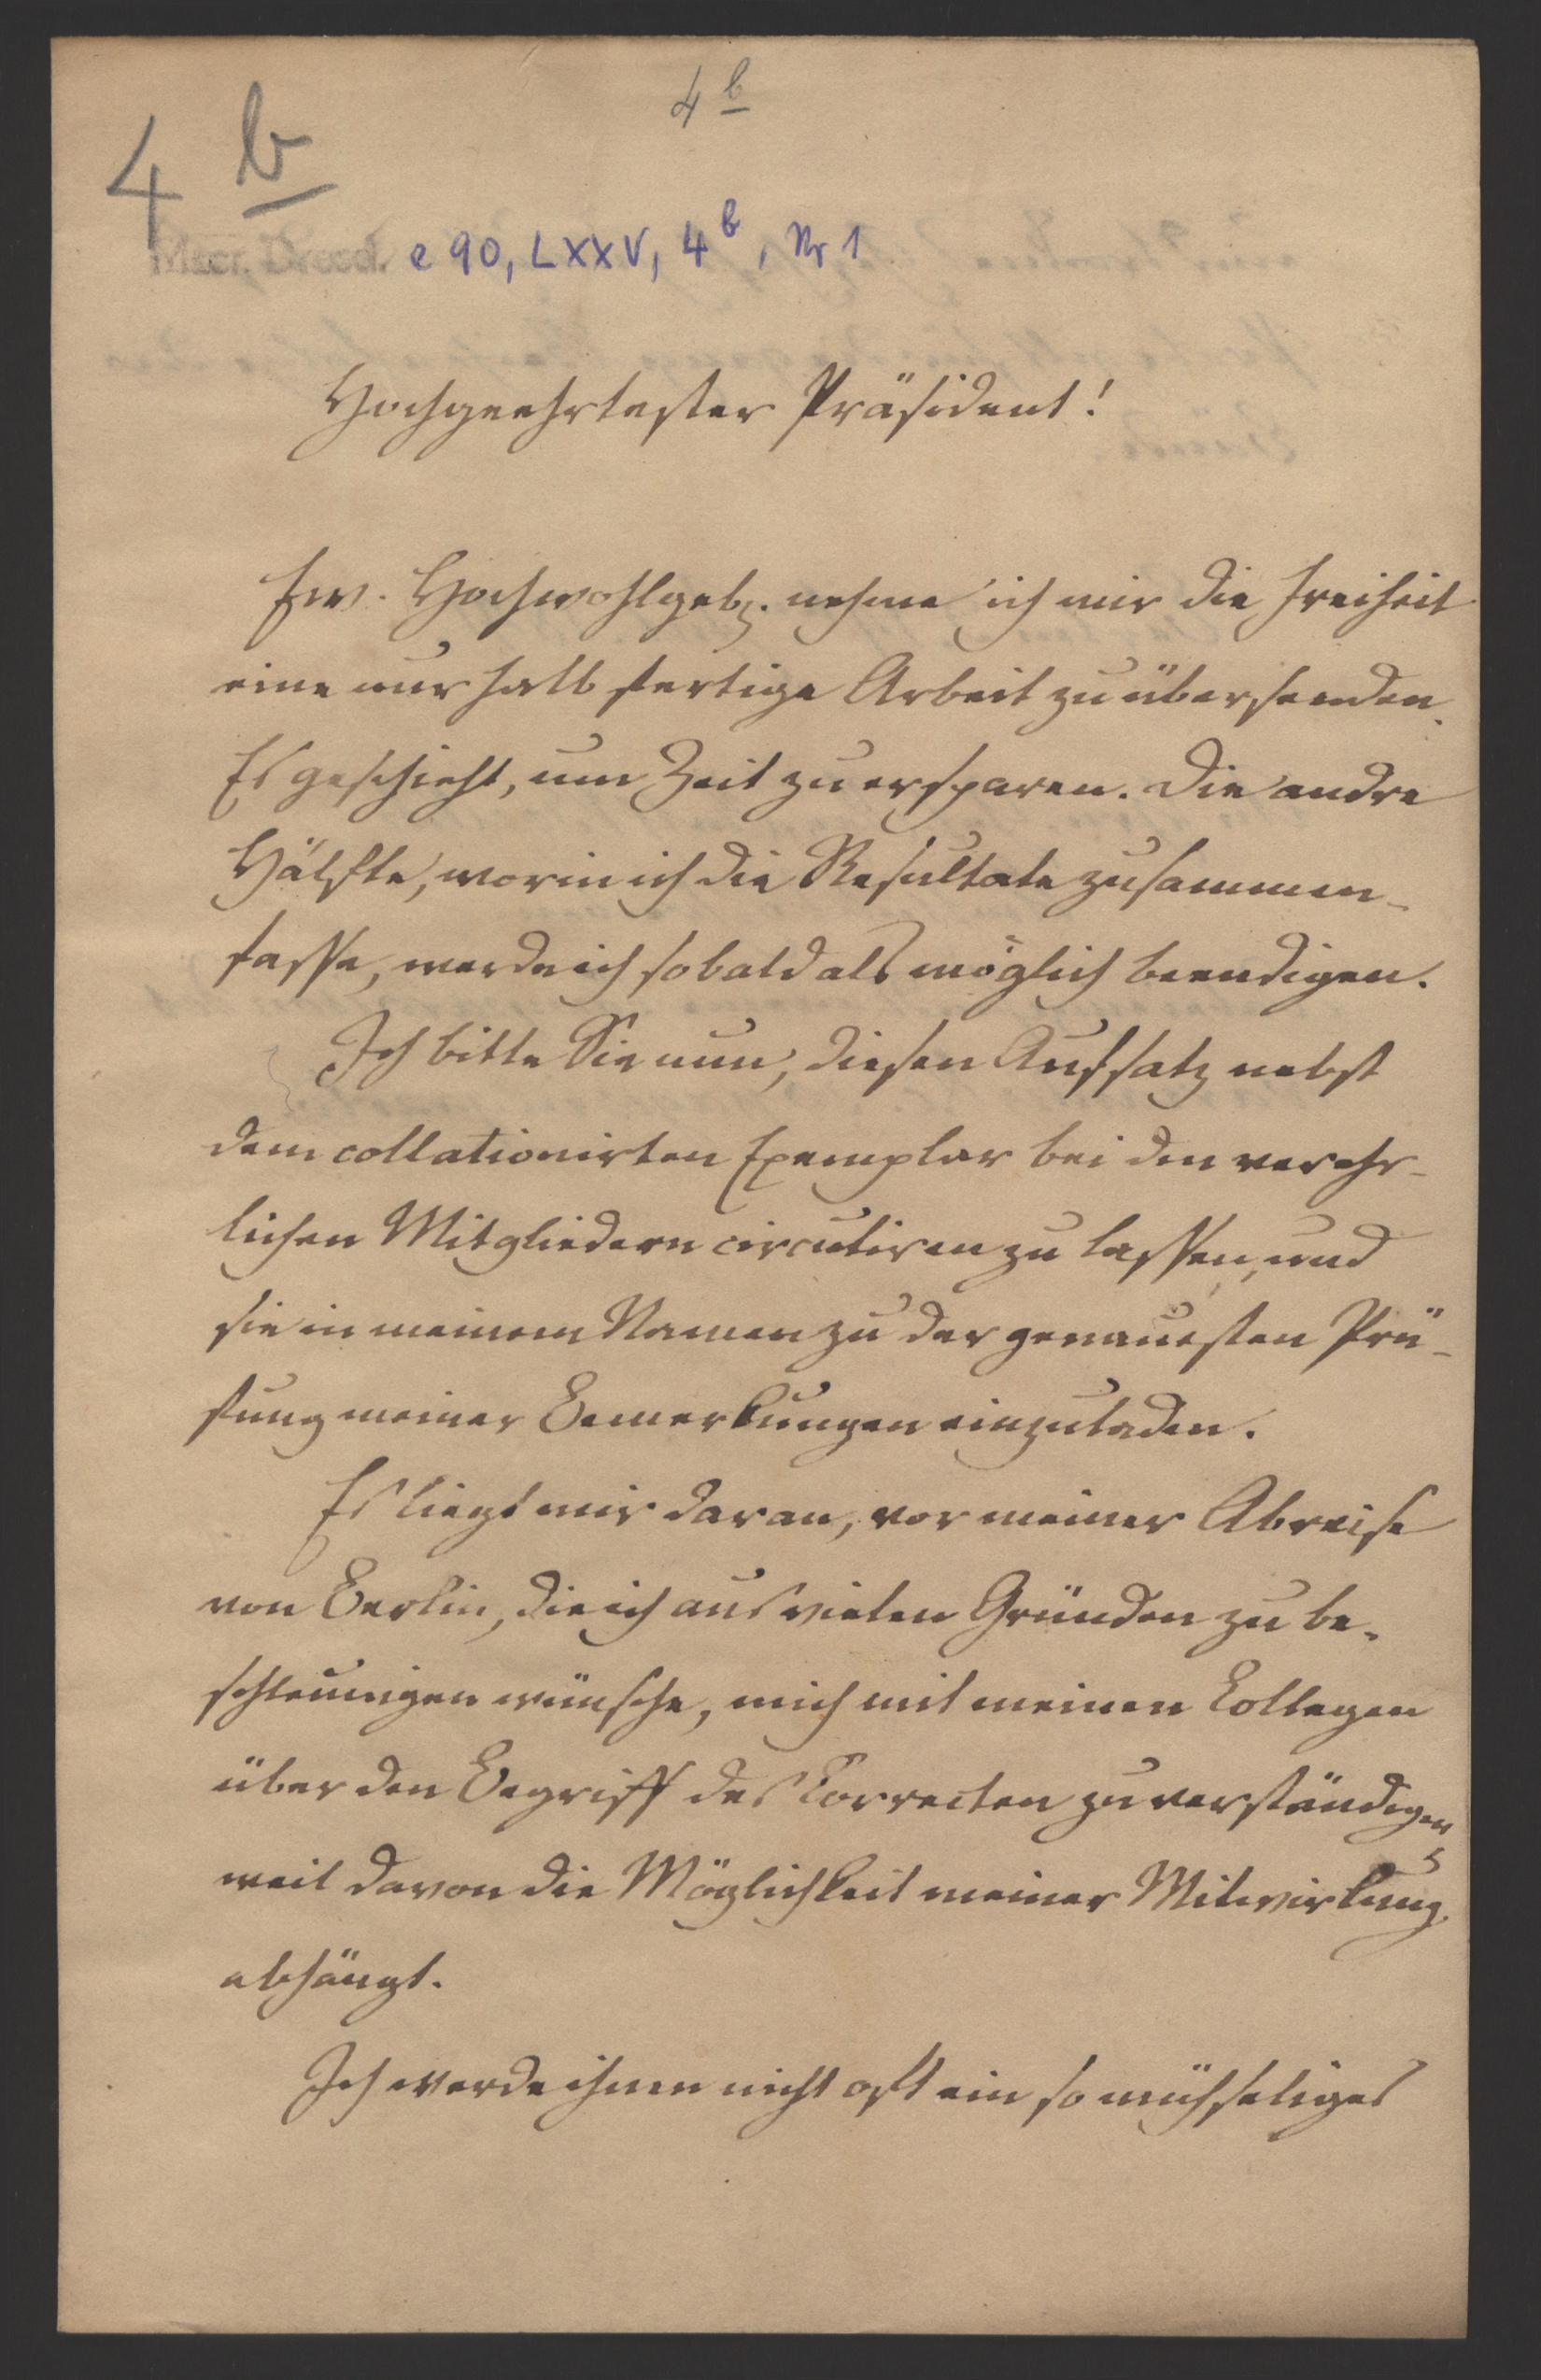 4 b
4 b
Mscr. Dresd. e 90, LXXV, 4 b, Nr 1
Hochgeehrtester Präsident!
Ew. Hochwohlgeb. nehme ich mir die Freiheit
eine nur halb fertige Arbeit zu übersenden.
Es geschieht, um Zeit zu ersparen. Die andre
Hälfte, worin ich die Resultate zusammen-
fasse, werde ich sobald als möglich beendigen.
Ich bitte Sie nun, diesen Aufsatz nebst
dem collationirten Exemplar bei den verehr-
lichen Mitgliedern circuliren zu lassen, und
sie in meinem Namen zu der genauesten Prü-
fung meiner Bemerkungen einzuladen.
Es liegt mir daran, vor meiner Abreise
von Berlin, die ich aus vielen Gründen zu be-
schleunigen wünsche, mich mit meinen Collegen
über den Begriff des Correcten zu verständigen,
weil davon die Möglichkeit meiner Mitwirkung
abhängt.
Ich werde ihnen nicht oft ein so mühseliges